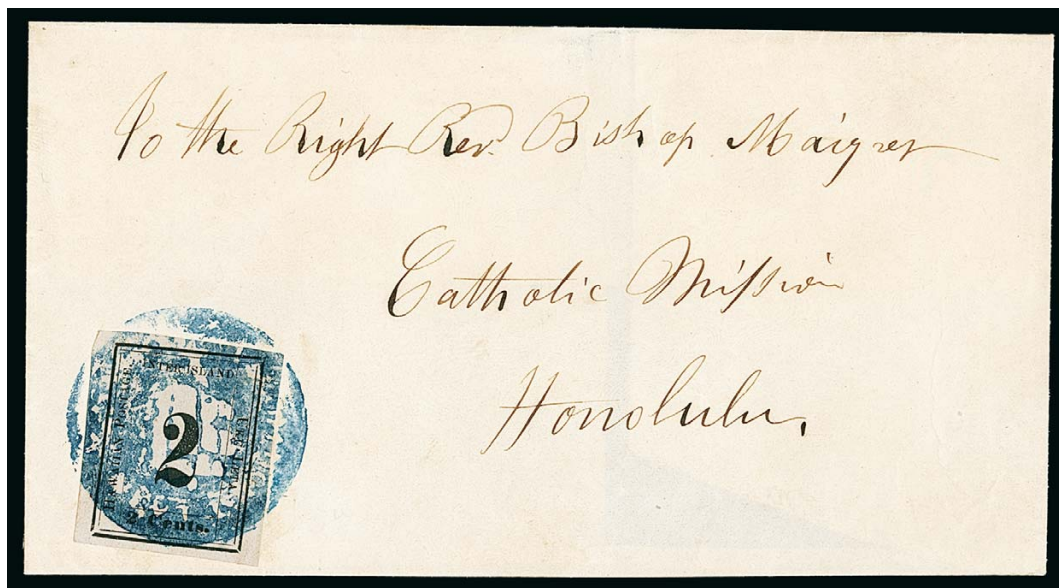 To the Right Revd. Bishop Maigret
Catholic Mission
Honolulu.
INTER ISLAND
HAWAIIAN POSTAGE
2
2 Cents.